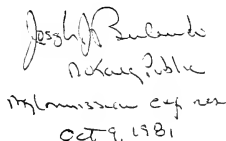 Joseph J.
Notary Public
My Commission exp res
Oct 9, 1981